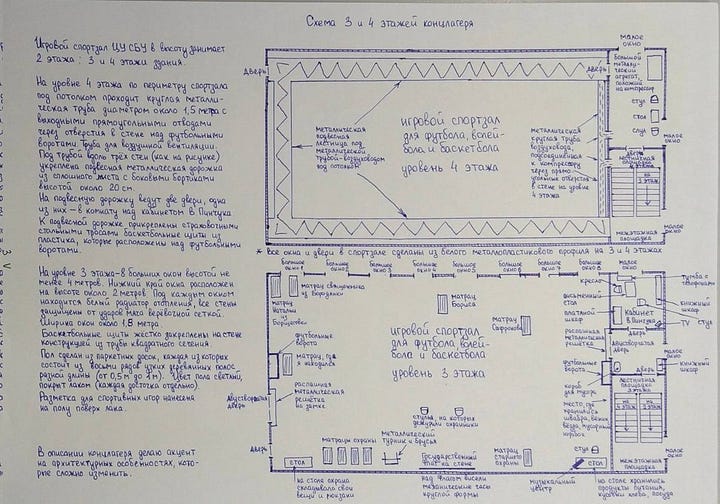 Схема 3 и 4 этажей концлагеря
Игровой спортзал ЦУ СБУ в высоту занимает
2 этажа: 3 и 4 этажи здания.
На уровне 4 этажа по периметру спортзала
под потолком проходит круглая металли-
ческая труба диаметром около 1,5 метра с
выходными прямоугольными отводами
через отверстия в стене над футбольными
воротами. Труба для воздушной вентиляции.
Под трубой вдоль трёх стен (как на рисунке)
укреплена подвесная металлическая дорожка
из сплошного листа с боковыми бортиками
высотой около 20 см.
На подвесную дорожку ведут две двери, одна
из них – в комнату над кабинетом В. Пинчука
К подвесной дорожке прикреплены страховочными
стальными тросами баскетбольные щиты из
пластика, которые расположены над футбольными
воротами.
На уровне 3 этажа – 8 больших окон высотой не
менее 4 метров. Нижний край окна расположен
на высоте около 2 метров. Под каждым окном
находится белый радиатор отопления, все стены
защищены от ударов мяча верёвочной сеткой.
Ширина окон около 1,5 метра
Баскетбольные щиты жёстко закреплены на стене
конструкцией из трубы квадратного сечения.
Пол сделан из паркетных досок, каждая из которых
состоит из восьми рядов узких деревянных полос
разной длины (от 0,5 м до 1 м). Цвет пола светлый,
покрыт лаком (каждая досточка отдельно).
Разметка для спортивных игор нанесена
на полу поверх лака.
В описании концлагеря делаю акцент
на архитектурных особенностях, кото-
рые сложно изменить.
Дверь
Дверь
малое
окно
большой
металли-
ческий
агрегат,
похожий
на компрессор
стул
стол
стул
малое
окно
дверь
лестничная
площадка
4 этажа
на
3
этаж
межэтажная
площадка
металлическая
подвесная
лестница под
металлической
трубой-воздуховодом
под потолком
игровой спортзал
для футбола, волей-
бола и баскетбола
уровень 4 этажа
металличес-
кая круглая
труба
воздуховода,
подсоединённая
к компрессору
через прямо-
угольные отверстия
в стене на уровне
4 этажа
* Все окна и двери в спортзале сделаны из белого металлопластикового профиля на 3 и 4 этажах
большое
окно 1
большое
окно 2
большое
окно 3
большое
окно 4
большое
окно 5
большое
окно 6
большое
окно 7
большое
окно 8
малое
окно
матрац священника
из Бородянки
матрац
Натальи
из
Борщаговки
матрац
Бориса
матрац
Сафронова
кресло
письменный
стол
платяной
шкаф
кабинет
В. Пинчука
тумба с
телефонами
книжный
шкаф
TV
стул
малое
окно
футбольные
ворота
матрац, где
я находился
распашная
металлическая
решётка
на замке
Двустворчатая
дверь
Дверь
игровой спортзал
для футбола, волей-
бола и баскетбола
уровень 3 этажа
распашная
металлическая
решётка
двустворчатая
дверь
футбольные
ворота
короб
для
мусора
место, где
хранились
швабра,
веник,
ведро,
мусорный
короб
дверь
книжный
шкаф
лестничная
площадка
3 этажа
на
4
этаж
на
2
этаж
межэтажная
площадка
стулья, на которых
дежурили охранники
матрацы охраны
металлический
турник и брусья
Государственный
флаг на стене
матрац
старшего
охраны
стул
стол
стол
на столе охрана
складывала свои
вещи и рюкзаки
над флагом висели
механические часы
круглой формы
музыкальный
центр
на столе хранились
продукты питания,
кулёк хлеба, посуда